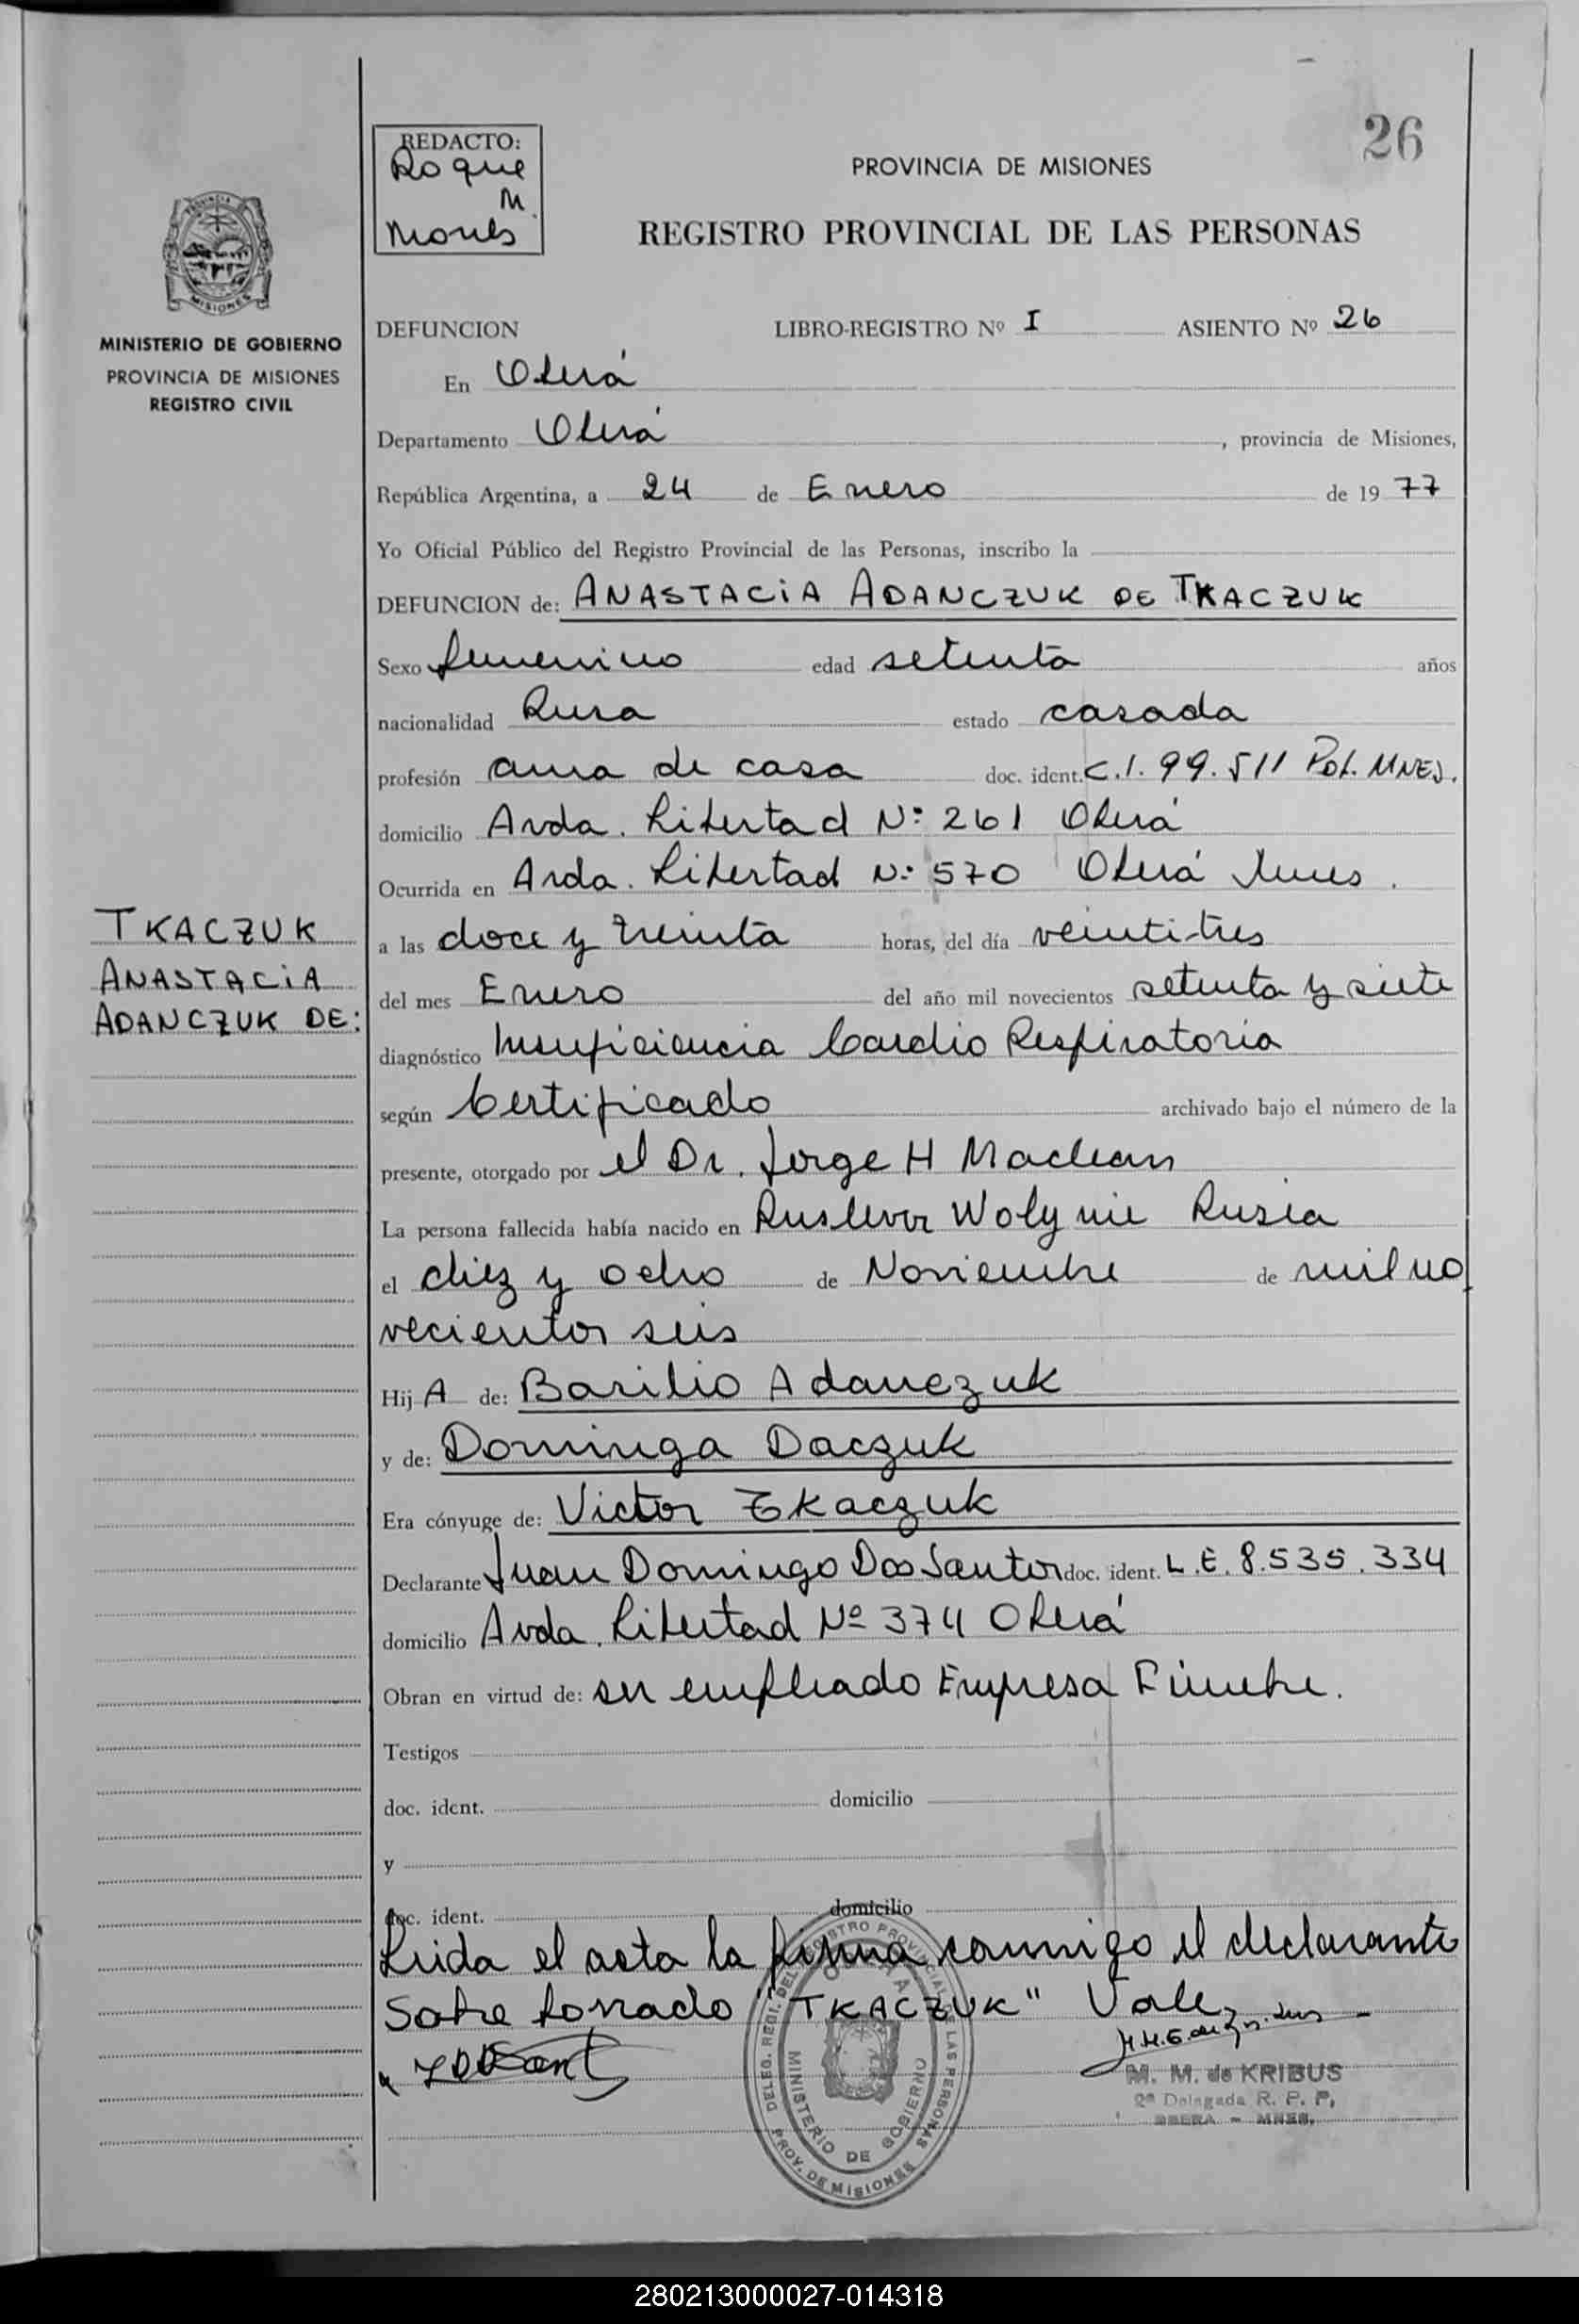 26
REDACTO:
Roque
M.
Morels
PROVINCIA DE MISIONES
REGISTRO PROVINCIAL DE LAS PERSONAS
MISIONES
MINISTERIO DE GOBIERNO
PROVINCIA DE MISIONES
REGISTRO CIVIL
DEFUNCION LIBRO-REGISTRO Nº I ASIENTO Nº 26
En Oberá
Departamento Oberá, provincia de Misiones,
República Argentina, a 24 de Enero de 1977
Yo Oficial Público del Registro Provincial de las Personas, inscribo la
DEFUNCION de: ANASTACIA ADANCZUK DE TKACZUK
Sexo femenino edad setenta años
nacionalidad Rusa estado casada
profesión ama de casa doc. ident. C.I. 99.511 Pol. MNES.
domicilio Avda. Libertad Nº 261 Oberá
Ocurrida en Avda. Libertad Nº 570 Oberá Mnes.
TKACZUK
ANASTACIA
ADANCZUK DE:
a las doce y treinta horas, del día veinti-tres
del mes Enero del año mil novecientos setenta y siete
diagnóstico Insuficiencia Cardio Respiratoria
según Certificado archivado bajo el número de la
presente, otorgado por el Dr. Jorge H Maclean
La persona fallecida había nacido en Wolynie Rusia
el diez y ocho de Noviembre de mil no
vecientos seis
Hij A de: Basilio Adanczuk
y de: Dominga Daczuk
Era cónyuge de: Victor Tkaczuk
Declarante Juan Domingo Dos Santos doc. ident. L.E. 8.535.334
domicilio Avda. Libertad Nº 374 Oberá
Obran en virtud de: ser empleado Empresa Fúnebre.
Testigos
doc. ident. domicilio
y
doc. ident. domicilio
Leida el acta la firma conmigo el declarante
Sobre borrado "TKACZUK" Vale
DELEG. REGI. DEL REGISTRO PROVINCIAL DE LAS PERSONAS
OBERA
MINISTERIO DE GOBIERNO
PROV. DE MISIONES
M. M. de KRIBUS
2ª Delegada R. P. P,
OBERA - MNES.
280213000027-014318